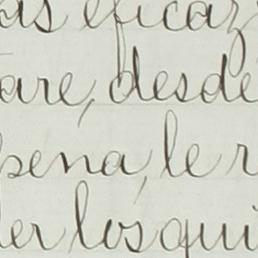 as eficaz
are, desde
pena, le r
er los qui